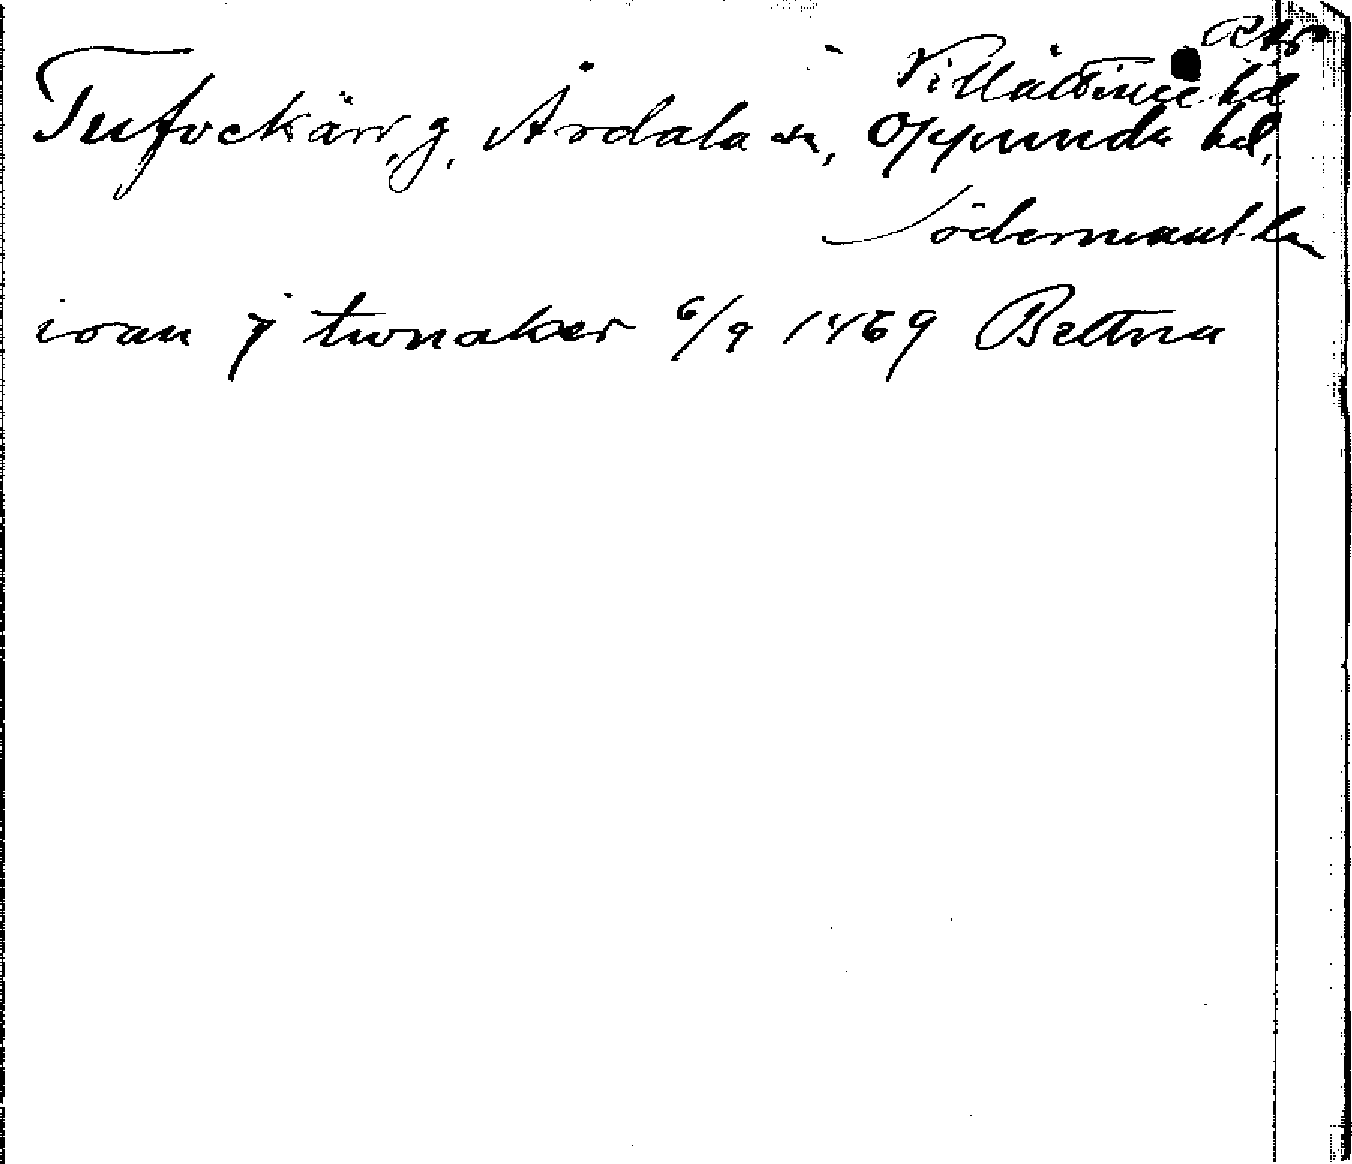 RAp
Villåttinge hd
Tufvekärr, g. Årdala sn, Oppunda hd,
Södermanl. län
ioan j twnaker 6/9 1469 Bettna